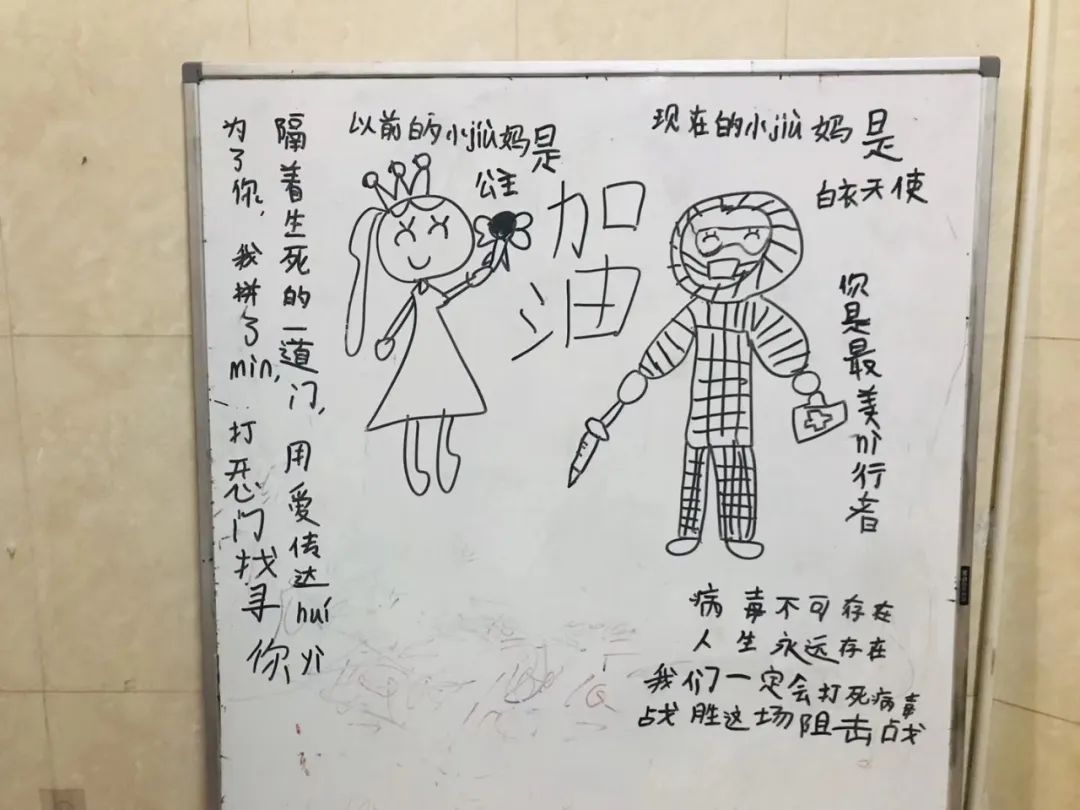 以前的小jiù妈是
公主
现在的小jiù妈是
白衣天使
加
油
隔着生死的一道门,用爱传达huí yì
为了你,我拼了min,打门找寻你
你是最美nì行者
病毒不可存在
人生永远存在
我们一定会打死病毒
战胜这场阻击战